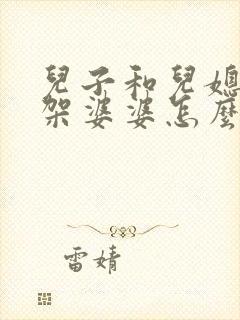 兒子和兒媳
架婆婆怎麼
雷婧